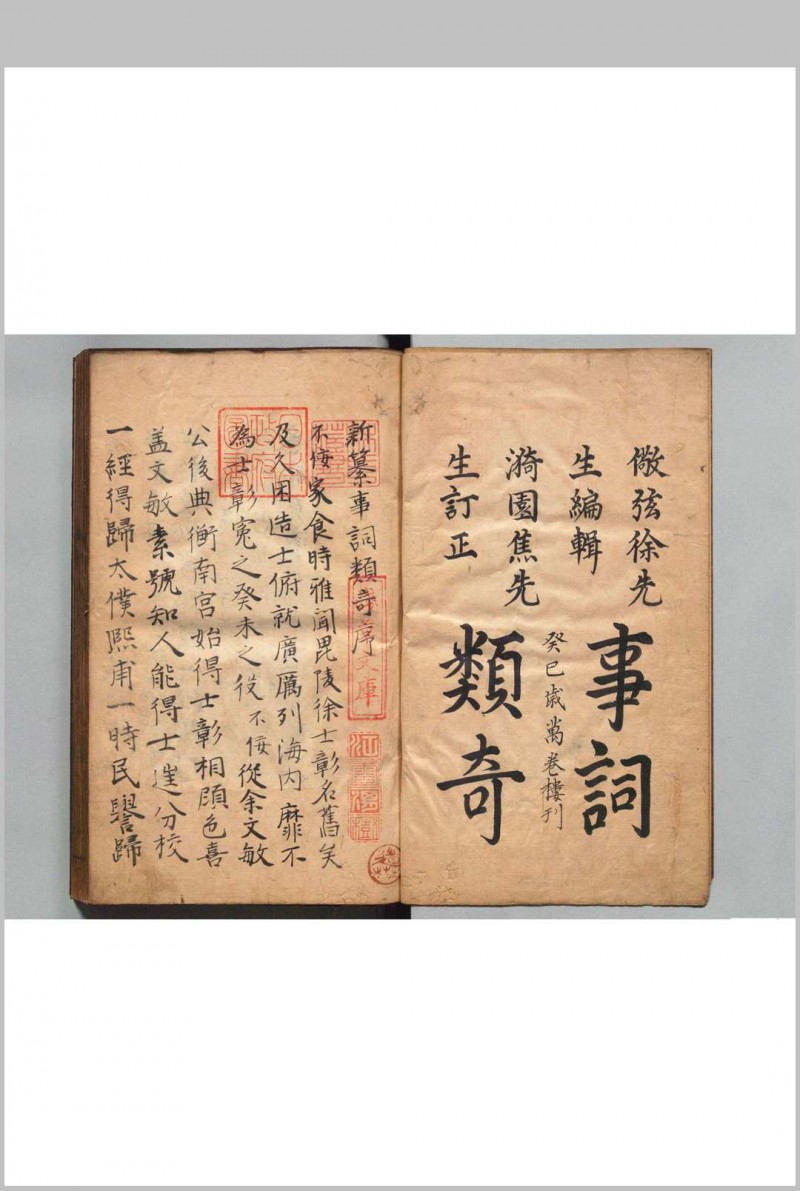 儆弦徐先
生編輯
漪園焦先
生訂正
事詞
癸巳歲萬卷樓刊
類奇
新纂事詞類奇序
不佞家食時雅聞毘陵徐士彰名舊矣
及久困造士俯就廣厲列海內靡不
為士彰冤之癸未之役不佞從余文敏
公後典衡南宮始得士彰相顧色喜
盖文敏素號知人能得士遑分校
一經得歸太僕熙甫一時民譽歸
文庫